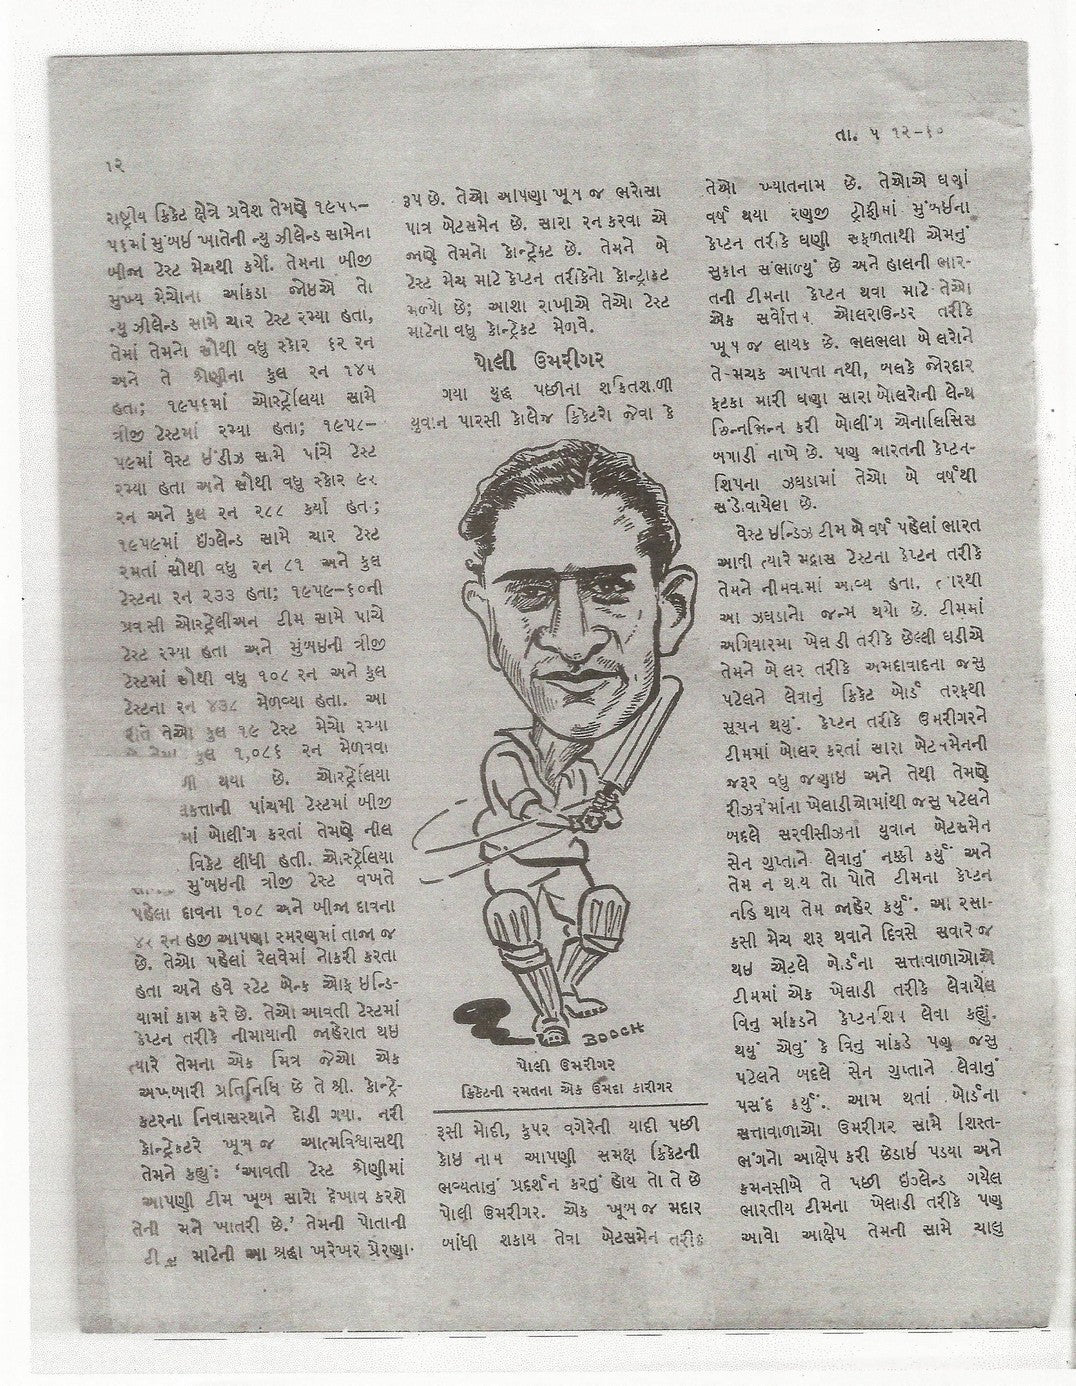 તા. ૫ ૧૨-૬૦
૧૨
રાષ્ટ્રીય ક્રિકેટ ક્ષેત્રે પ્રવેશ તેમણે ૧૯૫૫-
૫૬માં મુંબઇ ખાતેની ન્યુ ઝીલેન્ડ સામેના
બીજા ટેસ્ટ મેચથી કર્યો. તેમના બીજી
મુખ્ય મેચોના આંકડા જોઇએ તો
ન્યુ ઝીલેન્ડ સામે ચાર ટેસ્ટ રમ્યા હતા,
તેમાં તેમનો સૌથી વધુ સ્કોર ૬૨ રન
અને તે શ્રેણીના કુલ રન ૧૪૫
હતા; ૧૯૫૬માં ઓસ્ટ્રેલિયા સામે
ત્રીજી ટેસ્ટમાં રમ્યા હતા; ૧૯૫૮-
૫૯માં વેસ્ટ ઇંડીઝ સામે પાંચે ટેસ્ટ
રમ્યા હતા અને સૌથી વધુ સ્કોર ૯૨
રન અને કુલ રન ૨૮૮ કર્યા હતા;
૧૯૫૯માં ઇંગ્લેન્ડ સામે ચાર ટેસ્ટ
રમતાં સૌથી વધુ રન ૮૧ અને કુલ
ટેસ્ટના રન ૨૩૩ હતા; ૧૯૫૯-૬૦ની
પ્રવાસી ઓસ્ટ્રેલીઅન ટીમ સામે પાંચે
ટેસ્ટ રમ્યા હતા અને મુંબઇની ત્રીજી
ટેસ્ટમાં સૌથી વધુ ૧૦૮ રન અને કુલ
ટેસ્ટના રન ૪૩૮ મેળવ્યા હતા. આ
રીતે તેઓ કુલ ૧૯ ટેસ્ટ મેચો રમ્યા
કુલ ૧,૦૮૬ રન મેળવવા
થયા છે. ઓસ્ટ્રેલિયા
પાંચમી ટેસ્ટમાં બીજી
માં બોલીંગ કરતાં તેમણે નીલ
વિકેટ લીધી હતી. ઓસ્ટ્રેલિયા
મુંબઇની ત્રીજી ટેસ્ટ વખતે
પહેલા દાવના ૧૦૮ અને બીજા દાવના
રન હજી આપણા સ્મરણમાં તાજા જ
છે. તેઓ પહેલાં રેલવેમાં નોકરી કરતા
હતા અને હવે સ્ટેટ બેન્ક ઓફ ઇન્ડિ-
યામાં કામ કરે છે. તેઓ આવતી ટેસ્ટમાં
કેપ્ટન તરીકે નીમાયાની જાહેરાત થઇ
ત્યારે તેમના એક મિત્ર જેઓ એક
અખબારી પ્રતિનિધિ છે તે શ્રી. કોન્ટ્રે-
કટરના નિવાસસ્થાને દોડી ગયા. નરી
કોન્ટ્રેકટરે ખૂબ જ આત્મવિશ્વાસથી
તેમને કહ્યું: 'આવતી ટેસ્ટ શ્રેણીમાં
આપણી ટીમ ખૂબ સારો દેખાવ કરશે
તેની મને ખાતરી છે.' તેમની પોતાની
ટીમ માટેની આ શ્રદ્ધા ખરેખર પ્રેરણા-
રૂપ છે. તેઓ આપણા ખૂબ જ ભરોસા
પાત્ર બેટસમેન છે. સારા રન કરવા એ
જાણે તેમનો કોન્ટ્રેકટ છે. તેમને બે
ટેસ્ટ મેચ માટે કેપ્ટન તરીકેનો કોન્ટ્રાકટ
મળ્યો છે; આશા રાખીએ તેઓ ટેસ્ટ
માટેના વધુ કોન્ટ્રેકટ મેળવે.
પોલી ઉમરીગર
ગયા યુદ્ધ પછીના શકિતશાળી
યુવાન પારસી કોલેજ ક્રિકેટરો જેવા કે
BOOCH
પોલી ઉમરીગર
ક્રિકેટની રમતના એક ઉમદા કારીગર
રૂસી મોદી, કુપર વગેરેની યાદી પછી
કોઇ નામ આપણી સમક્ષ ક્રિકેટની
ભવ્યતાનું પ્રદર્શન કરતું હોય તો તે છે
પોલી ઉમરીગર. એક ખૂબ જ મદાર
બાંધી શકાય તેવા બેટસમેન તરીકે
તેઓ ખ્યાતનામ છે. તેઓએ ઘણાં
વર્ષ થયા રણજી ટ્રોફીમાં મુંબઇના
કેપ્ટન તરીકે ઘણી સફળતાથી એમનું
સુકાન સંભાળ્યું છે અને હાલની ભાર-
તની ટીમના કેપ્ટન થવા માટે તેઓ
એક સર્વોત્તમ ઓલરાઉન્ડર તરીકે
ખૂબ જ લાયક છે. ભલભલા બોલરોને
તે મચક આપતા નથી, બલકે જોરદાર
ફટકા મારી ઘણા સારા બોલરોની લેન્થ
છિન્નભિન્ન કરી બોલીંગ એનાલિસિસ
બગાડી નાખે છે. પણ ભારતની કેપ્ટન-
શિપના ઝઘડામાં તેઓ બે વર્ષથી
સંડોવાયેલા છે.
વેસ્ટ ઇન્ડિઝ ટીમ બે વર્ષ પહેલાં ભારત
આવી ત્યારે મદ્રાસ ટેસ્ટના કેપ્ટન તરીકે
તેમને નીમવામાં આવ્યા હતા. ત્યારથી
આ ઝઘડાનો જન્મ થયો છે. ટીમમાં
અગિયારમા ખેલાડી તરીકે છેલ્લી ઘડીએ
તેમને બોલર તરીકે અમદાવાદના જસુ
પટેલને લેવાનું ક્રિકેટ બોર્ડ તરફથી
સૂચન થયું. કેપ્ટન તરીકે ઉમરીગરને
ટીમમાં બોલર કરતાં સારા બેટસમેનની
જરૂર વધુ જણાઇ અને તેથી તેમણે
રીઝર્વમાંના ખેલાડીઓમાંથી જસુ પટેલને
બદલે સરવીસીઝના યુવાન બેટસમેન
સેન ગુપ્તાને લેવાનું નક્કી કર્યું અને
તેમ ન થાય તો પોતે ટીમના કેપ્ટન
નહિ થાય તેમ જાહેર કર્યું. આ રસા-
કસી મેચ શરૂ થવાને દિવસે સવારે જ
થઇ એટલે બોર્ડના સત્તાવાળાઓએ
ટીમમાં એક ખેલાડી તરીકે લેવાયેલ
વિનુ માંકડને કેપ્ટનશિપ લેવા કહ્યું.
થયું એવું કે વિનુ માંકડે પણ જસુ
પટેલને બદલે સેન ગુપ્તાને લેવાનું
પસંદ કર્યું. આમ થતાં બોર્ડના
સત્તાવાળાઓ ઉમરીગર સામે શિસ્ત-
ભંગનો આક્ષેપ કરી છેડાઇ પડયા અને
કમનસીબે તે પછી ઇંગ્લેન્ડ ગયેલ
ભારતીય ટીમના ખેલાડી તરીકે પણ
આવો આક્ષેપ તેમની સામે ચાલુ